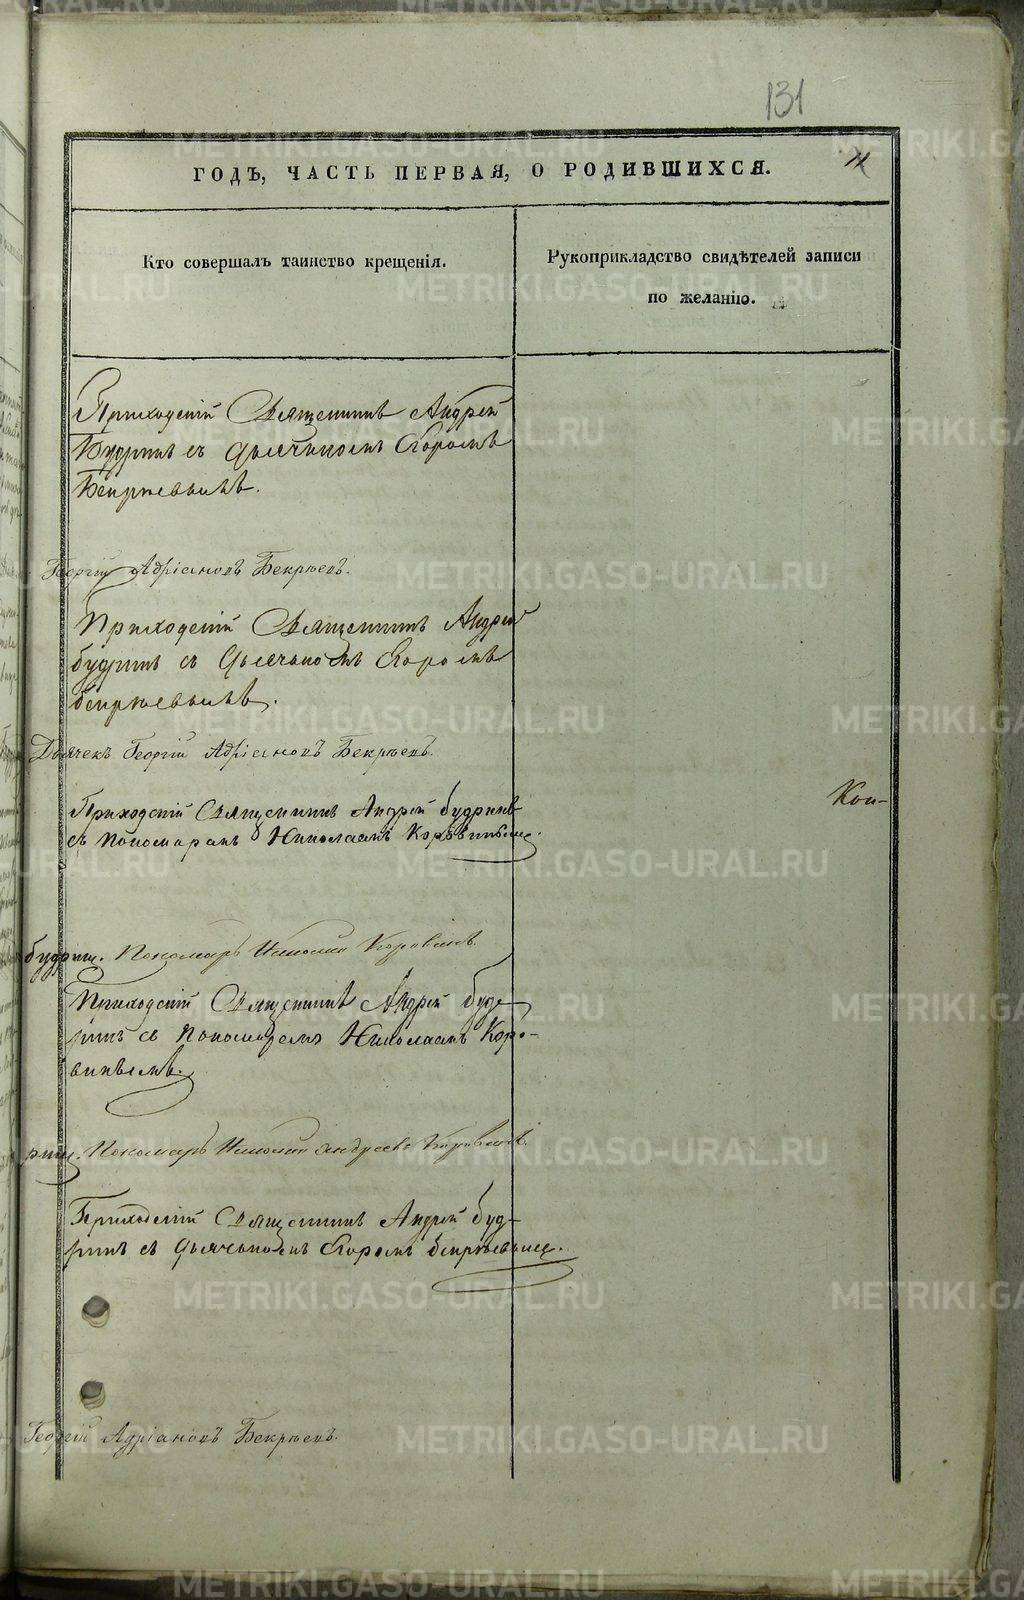 131
11
ГОДЪ, ЧАСТЬ ПЕРВАЯ, О РОДИВШИХСЯ.
Кто совершалъ таинство крещенія.
Рукоприкладство свидѣтелей записи
по желанію.
Приходскій Священникъ Андрей
Будринъ съ дьячкомъ Егоромъ
Бекрѣевымъ.
Георгій Адріановъ Бекрѣевъ.
Приходскій Священникъ Андрей
будринъ съ Дьячькомъ Егоромъ
бекрѣевымъ.
Дьячекъ Георгій Адріановъ Бекрѣевъ.
Приходскій Священникъ Андрей будринъ
съ пономаремъ Николаемъ Коровинымъ.
Кон-
будрин. Пономарь Николай Коровинъ.
Приходскій Священникъ Андрей буд-
ринъ съ пономаремъ Николаемъ Коро-
винымъ.
рин. Пономарь Николай Андреевъ Коровинъ.
Приходскій Священникъ Андрей буд-
ринъ съ дьячькомъ Егоромъ бекрѣевымъ.
Георгій Адріановъ Бекрѣевъ.
METRIKI.GASO-URAL.RU